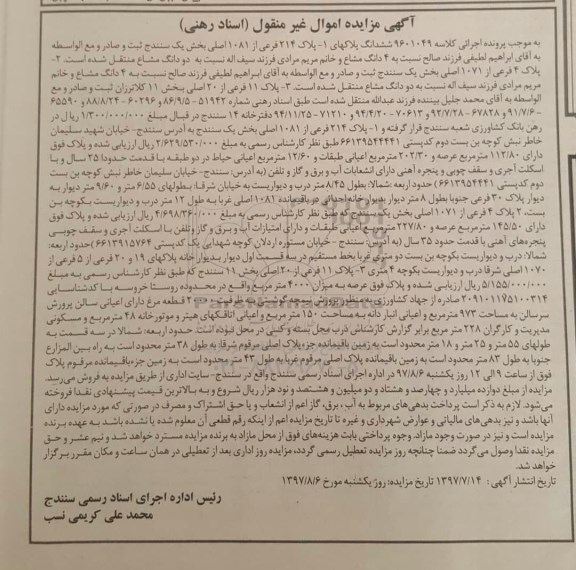 آگهی مزایده اموال غیر منقول (اسناد رهنی)
به موجب پرونده اجرائی کلاسه ۹۶۰۱۰۴۹ ششدانگ پلاکهای ۱- پلاک ۲۱۴ فرعی از ۱۰۸۱ اصلی بخش یک سنندج ثبت و صادر و مع الواسطه
به آقای ابراهیم لطیفی فرزند صالح نسبت به ۴ دانگ مشاع و خانم مریم مرادی فرزند سیف اله نسبت به دو دانگ مشاع منتقل شده است. ۲-
پلاک ۴ فرعی از ۱۰۷۱ اصلی بخش یک سنندج ثبت و صادر و مع الواسطه به آقای ابراهیم لطیفی فرزند صالح نسبت به ۴ دانگ مشاع و خانم
مریم مرادی فرزند سیف اله نسبت به دو دانگ مشاع منتقل شده است. ۳- پلاک ۱۱ فرعی از ۲۰ اصلی بخش ۱۱ کلاترزان ثبت و صادر و مع
الواسطه به آقای محمد جلیل بیننده فرزند عبدالله منتقل شده است طبق اسناد رهنی شماره ۵۱۹۴۲ - ۸۶/۹/۵ و ۶۰۲۹۶ - ۸۸/۸/۲۴ و ۶۵۵۹۰
- ۹۱/۷/۶ و ۶۷۸۲۸ - ۹۲/۷/۲۸ و ۷۰۶۱۳ - ۹۴/۴/۲۰ و ۷۱۲۱۰ - ۹۴/۱۱/۲۵ دفترخانه ۱۴ سنندج در قبال مبلغ ۱/۳۰۰/۰۰۰/۰۰۰ ریال در
رهن بانک کشاورزی شعبه سنندج قرار گرفته و ۱- پلاک ۲۱۴ فرعی از ۱۰۸۱ اصلی بخش یک سنندج به آدرس سنندج- خیابان شهید سلیمان
خاطر نبش کوچه بن بست دوم کدپستی ۶۶۱۳۹۵۴۴۴۱ طبق نظر کارشناس رسمی به مبلغ ۲/۶۲۹/۵۳۰/۰۰۰ ریال ارزیابی شده و پلاک فوق
دارای ۱۱۲/۸۰ مترمربع عرصه و ۲۰۲/۳۰ مترمربع اعیانی طبقات و ۱۲/۶۰ مترمربع اعیانی حیاط در دو طبقه با قدمت حدودا ۲۵ سال و با
اسکلت آجری و سقف چوبی و پنجره آهنی دارای انشعابات آب و برق و گاز و تلفن (به آدرس: سنندج- خیابان سلیمان خاطر نبش کوچه بن بست
دوم کدپستی ۶۶۱۳۹۵۴۴۴۱) حدود اربعه :شمالا: بطول ۸/۴۵ متر درب و دیواریست به خیابان شرقا: بطولهای ۶/۵۵ متر و ۹/۶۰ متر دیوار به
دیوار پلاک ۳۰ فرعی جنوبا بطول ۸ متر دیوار بدیوار خانه احداثی در باقیمانده ۱۰۸۱ اصلی غربا به طول ۱۲ متر درب و دیواریست بکوچه بن
بست، ۲ پلاک ۴ فرعی از ۱۰۷۱ اصلی بخش یک سنندج طبق نظر کارشناس رسمی به مبلغ ۴/۶۹۸/۳۶۰/۰۰۰ ریال ارزیابی شده و پلاک فوق
دارای ۱۴۵/۵۰ مترمربع عرصه و ۲۲۷/۸۰ مترمربع اعیانی طبقات و دارای امتیازات آب و برق و گاز و تلفن با اسکلت آجری و سقف چوبی
پنجره‌های آهنی با قدمت حدود ۳۵ سال (به آدرس: سنندج - خیابان مستوره اردلان کوچه شهدایی پک کدپستی ۶۶۱۳۹۱۵۷۶۴) حدود اربعه:
شمالا: درب و دیواریست بکوچه بن بست دو متری غربا بخط مستقیم در سه قسمت اول دیوار بدیوار خانه پلاکهای ۱۹ و ۲۰ فرعی از ۵ فرعی از
۱۰۷۰ اصلی شرقا درب و دیواریست بکوچه ۴ متری ۳- پلاک ۱۱ فرعی از ۲۰ اصلی بخش ۱۱ سنندج که طبق نظر کارشناس رسمی به مبلغ
۵/۱۵۵/۰۰۰/۰۰۰ ریال ارزیابی شده و پلاک فوق عرصه به میزان ۴۰۰۰ متر مربع واقع در محدوده روستا خروسه با کدشناسایی
۲۰۹۱۰۱۱۷۵۱۰۰۳۱۴ صادره از جهاد کشاورزی به منظور پرورش نیمچه گوشتی به ظرفیت قطعه مرغ دارای اعیانی سالن پرورش
سرسالن به مساحت ۹۷۳ مترمربع و اعیانی انبار دانه به مساحت ۱۵۰ متر مربع و اعیانی اتاقکهای هیتر و موتورخانه ۴۸ مترمربع و مسکونی
مدیریت و کارگران ۲۲۸ متر مربع برابر گزارش کارشناس درب محل بسته و کسی در محل نبوده است. حدود اربعه: شمالا در سه قسمت به
طولهای ۵۵ متر و ۲۵ متر و ۱۸ متر محدود است به زمین باقیمانده جزء پلاک اصلی مرقوم شرقا: به طول ۳۸ متر محدود است به راه بین المزارع
جنوبا به طول ۸۳ متر محدود است به زمین باقیمانده پلاک اصلی مرقوم غربا به طول ۴۳ متر محدود است به زمین جزء باقیمانده مرقوم پلاک
فوق از ساعت ۹ الی ۱۲ روز یکشنبه ۹۷/۸/۶ در اداره اجرای اسناد رسمی سنندج واقع در سنندج- سایت اداری از طریق مزایده به فروش می‌رسد.
مزایده از مبلغ دوازده میلیارد و چهارصد و هشتاد و دو میلیون و هشتصد و نود هزار ریال شروع و به بالاترین قیمت پیشنهادی نقدا فروخته
می‌شود. لازم به ذکر است پرداخت بدهی‌های مربوط به آب، برق، گاز اعم از انشعاب و یا حق اشتراک و مصرف در صورتی که مورد مزایده دارای
آنها باشد و نیز بدهی‌های مالیاتی و عوارض شهرداری و غیره تا تاریخ مزایده اعم از اینکه رقم قطعی آن معلوم شده یا نشده باشد به عهده برنده
مزایده است و نیز در صورت وجود مازاد، وجوه پرداختی بابت هزینه‌های فوق از محل مازاد به برنده مزایده مسترد خواهد شد و نیم عشر و حق
مزایده نقدا وصول می‌گردد ضمنا چنانچه روز مزایده تعطیل رسمی گردد، مزایده روز اداری بعد از تعطیلی در همان ساعت و مکان مقرر برگزار
خواهد شد.
تاریخ انتشار آگهی : ۱۳۹۷/۷/۱۴ تاریخ مزایده: روز: یکشنبه مورخ ۱۳۹۷/۸/۶
رئیس اداره اجرای اسناد رسمی سنندج
محمد علی کریمی نسب